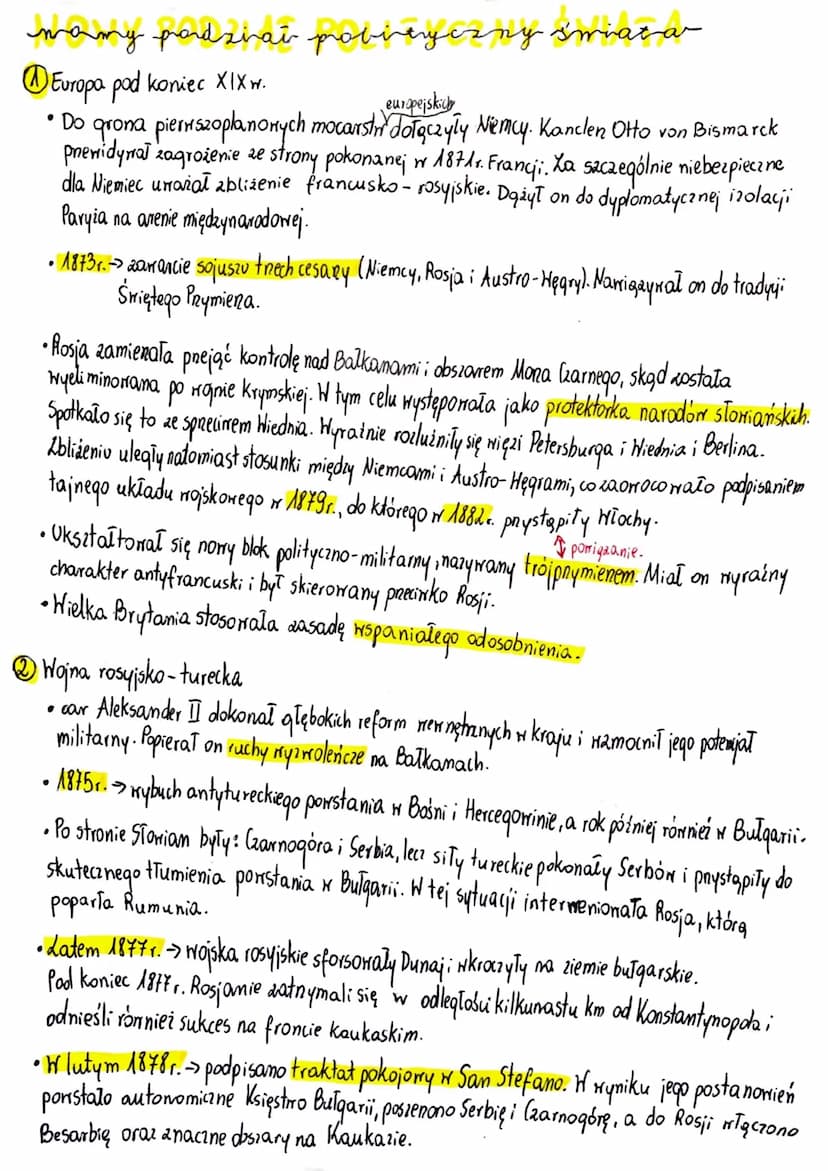 NOWY PODZIAŁ POLITYCZNY ŚWIATA
① Europa pod koniec XIXw.
europejskich
• Do grona pierwszoplanowych mocarstw dołączyły Niemcy. Kanclerz Otto von Bismarck
przewidywał zagrożenie ze strony pokonanej w 1871r. Francji. Za szczególnie niebezpieczne
dla Niemiec uważał zbliżenie francusko-rosyjskie. Dążył on do dyplomatycznej izolacji
Paryża na arenie międzynarodowej.
• 1873r. → zawarcie sojuszu trzech cesarzy (Niemcy, Rosja i Austro-Węgry). Nawiązywał on do tradycji
Świętego Przymierza.
• Rosja zamierzała przejąć kontrolę nad Bałkanami i obszarem Morza Czarnego, skąd została
wyeliminowana po wojnie krymskiej. W tym celu występowała jako protektorka narodów słowiańskich.
Spotkało się to ze sprzeciwem Wiednia. Wyraźnie rozluźniły się więzi Petersburga i Wiednia i Berlina.
Zbliżeniu uległy natomiast stosunki między Niemcami i Austro-Węgrami, co zaowocowało podpisaniem
tajnego układu wojskowego w 1879r., do którego w 1882r. przystąpiły Włochy.
↕ powiązanie.
• Ukształtował się nowy blok polityczno-militarny, nazywany trójprzymierzem. Miał on wyraźny
charakter antyfrancuski i był skierowany przeciwko Rosji.
• Wielka Brytania stosowała zasadę wspaniałego odosobnienia.
② Wojna rosyjsko-turecka
• car Aleksander II dokonał głębokich reform wewnętrznych w kraju i wzmocnił jego potencjał
militarny. Popierał on ruchy wyzwoleńcze na Bałkanach.
• 1875r. → wybuch antytureckiego powstania w Bośni i Hercegowinie, a rok później również w Bułgarii.
• Po stronie Słowian były: Czarnogóra i Serbia, lecz siły tureckie pokonały Serbów i przystąpiły do
skutecznego tłumienia powstania w Bułgarii. W tej sytuacji interweniowała Rosja, którą
poparła Rumunia.
• Latem 1877r. → wojska rosyjskie sforsowały Dunaj i wkroczyły na ziemie bułgarskie.
Pod koniec 1877r. Rosjanie zatrzymali się w odległości kilkunastu km od Konstantynopola i
odnieśli również sukces na froncie kaukaskim.
• W lutym 1878r. → podpisano traktat pokojowy w San Stefano. W wyniku jego postanowień
powstało autonomiczne Księstwo Bułgarii, poszerzono Serbię i Czarnogórę, a do Rosji włączono
Besarbię oraz znaczne obszary na Kaukazie.